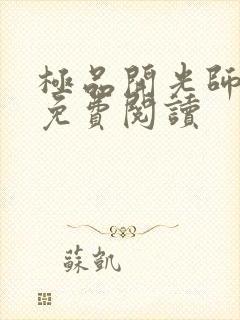 極品開光師
免費閱讀
蘇凱